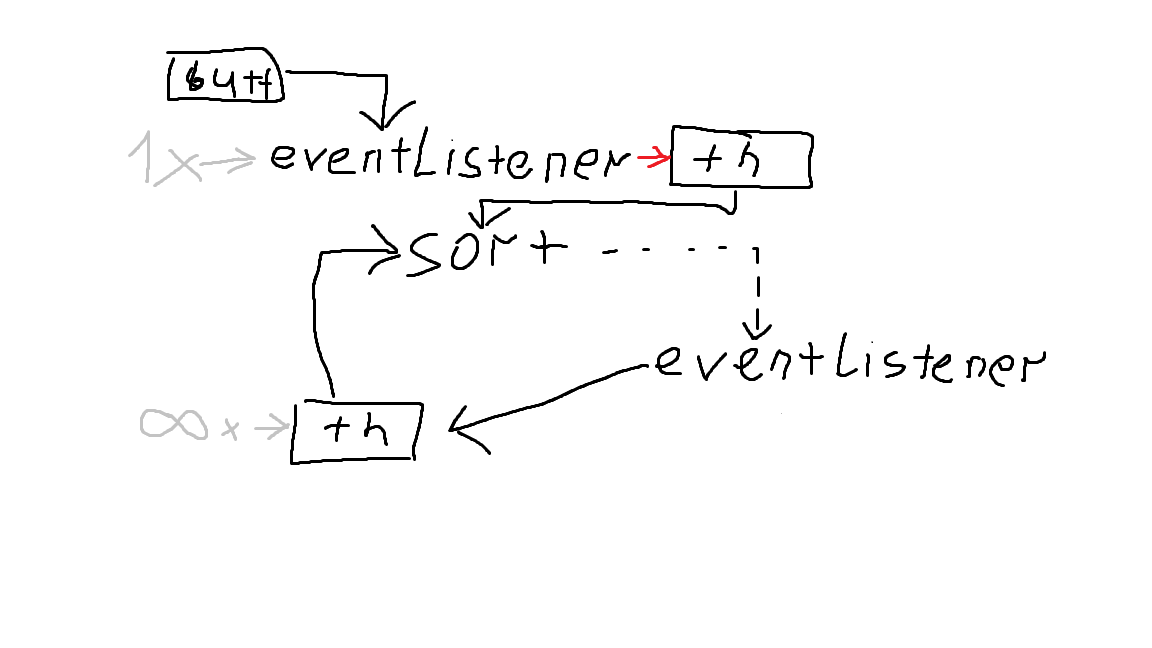 butt
1x eventListener + h
sort
eventListener
∞ x + h